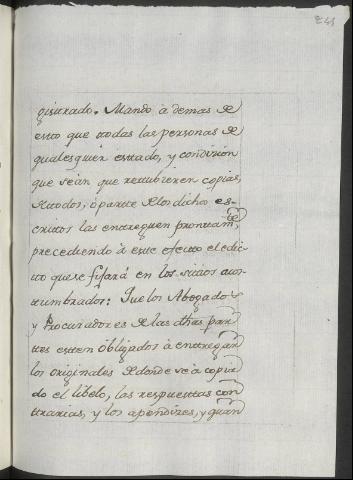 241
gistrado. Mando à demas de
esto que todas las personas de
qualesquier estado, y condision
que sean que rettubieren copias,
de todos, ò partte de los dicho es-
critos las entreguen prontam.te
precediendo à este efecto el edic-
to que se fijará en los sitios acos
tumbrados: Que los Abogados
y Procuradores de las dhas par
tes esten obligados à entregar
los originales de donde se à copia
do el libelo, las respuestas con
trarias, y los apendizes, y quan